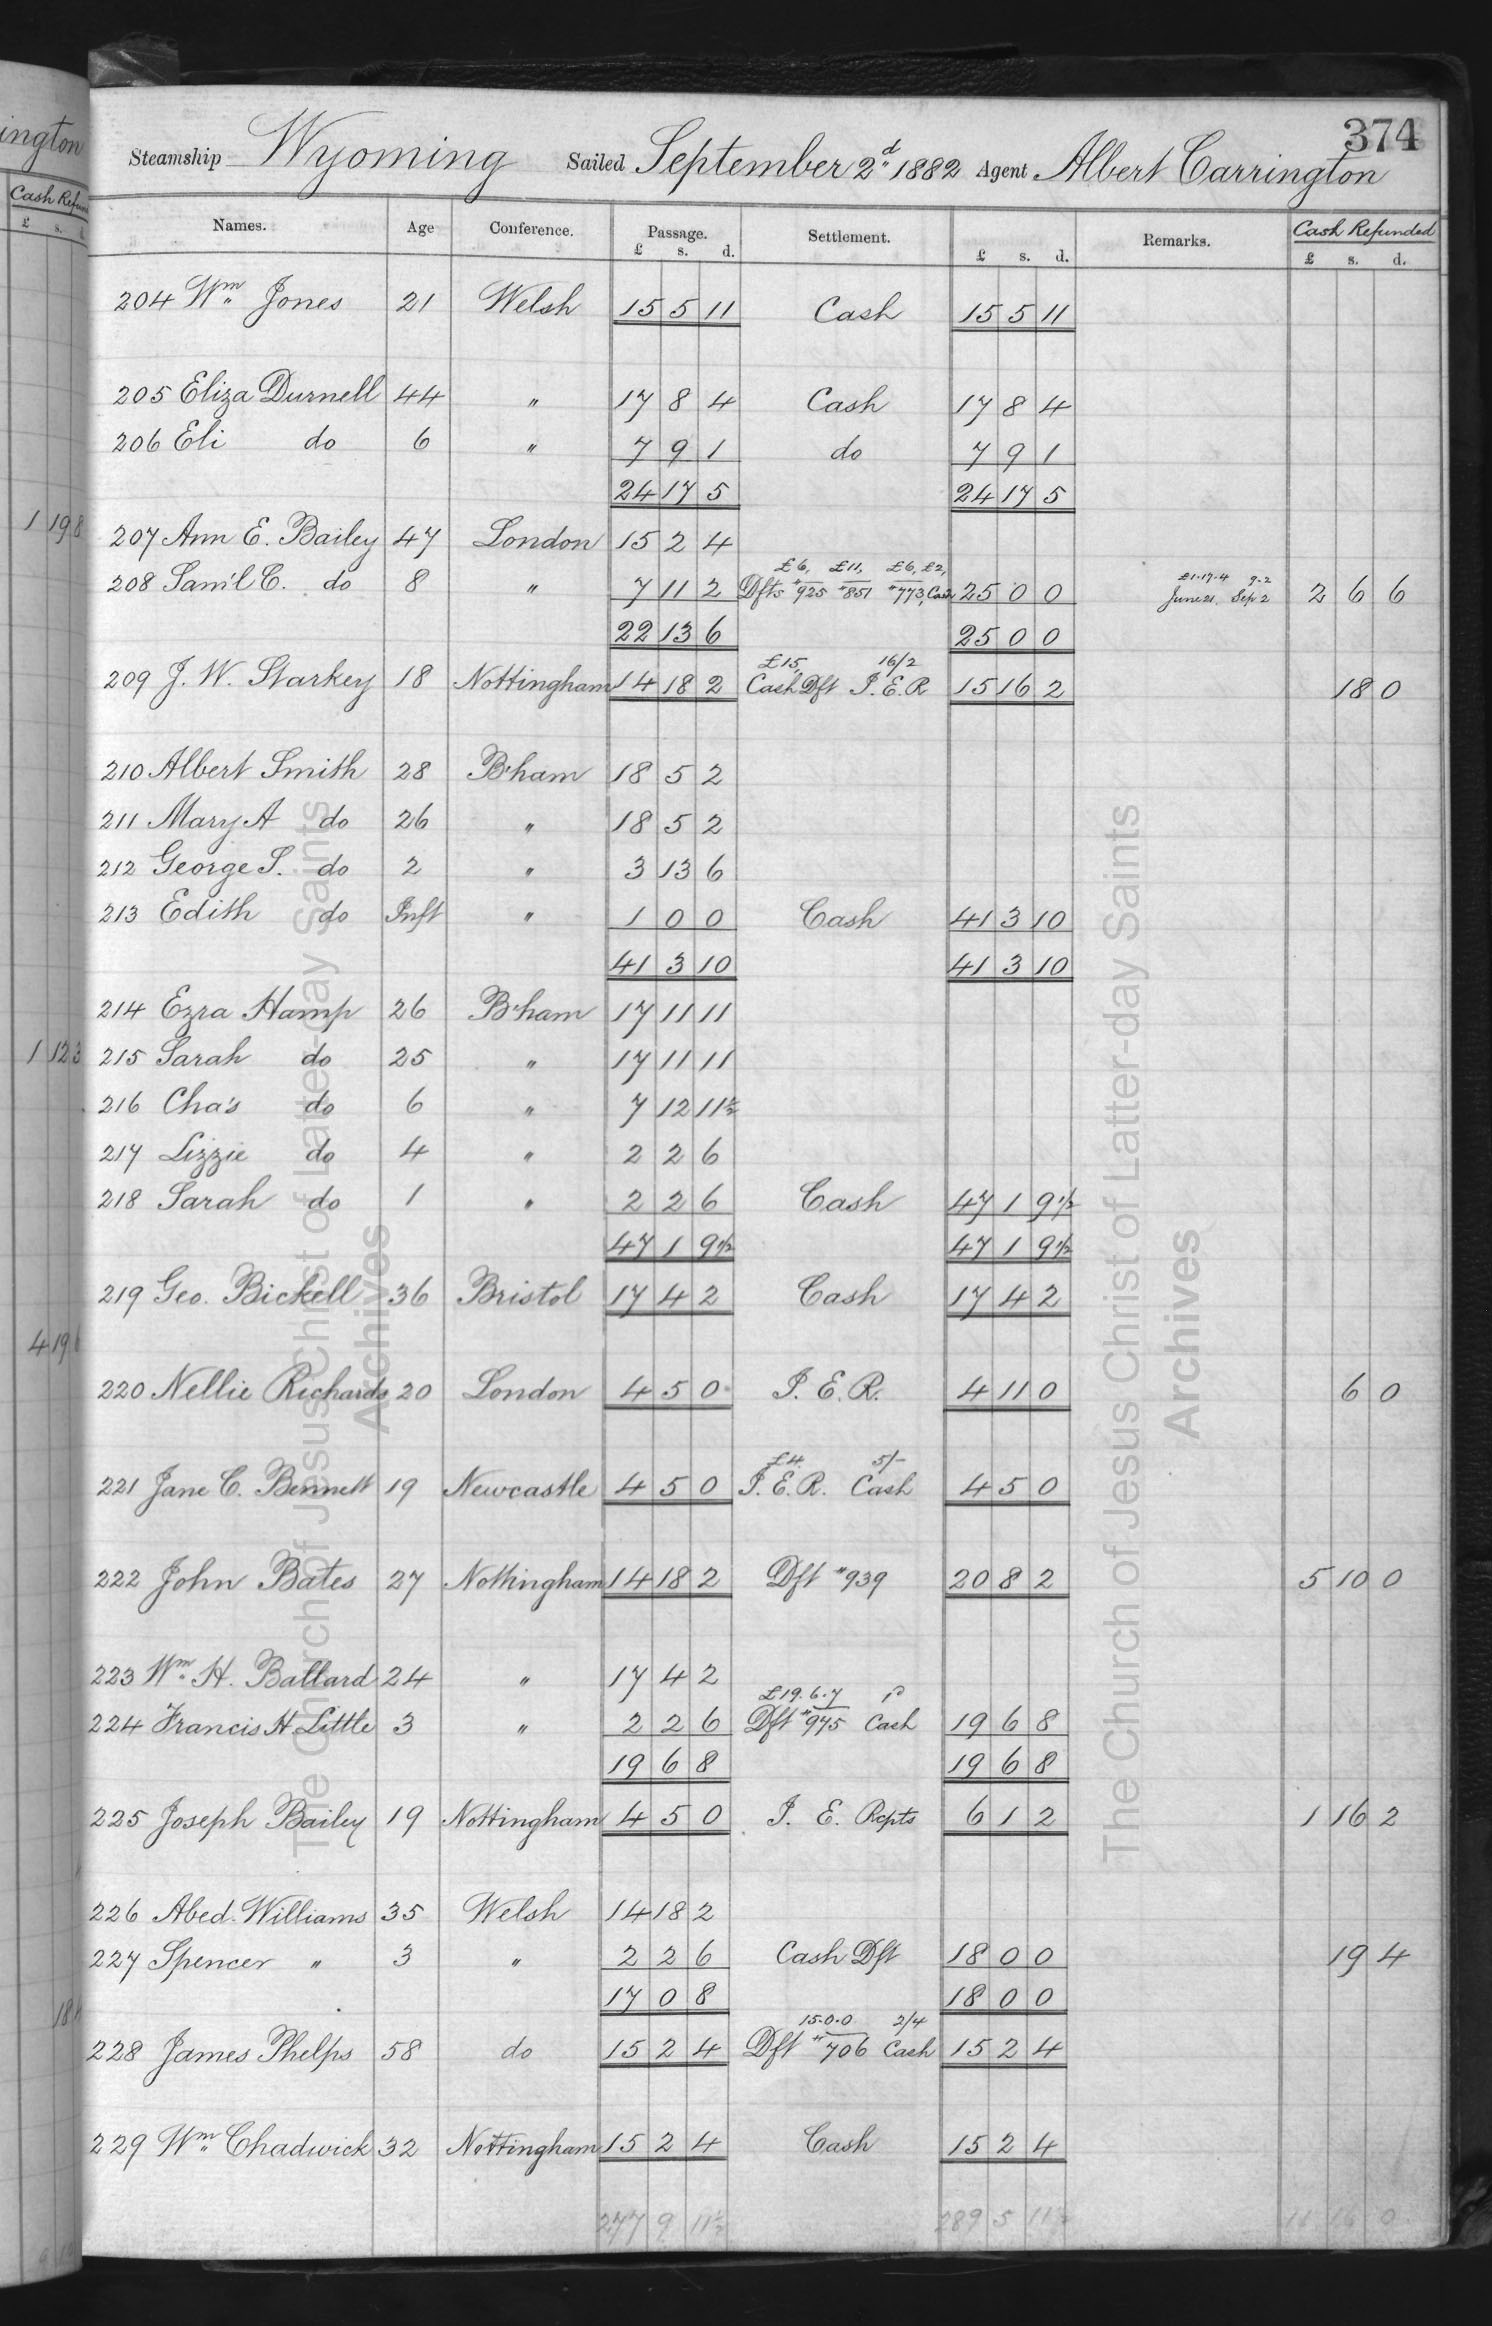 374
Steamship Wyoming Sailed September 2d 1882 Agent Albert Carrington
Names. Age Conference. Passage. £ s. d. Settlement. £ s. d. Remarks. Cash Refunded £ s. d.
204 Wm Jones 21 Welsh 15 5 11 Cash 15 5 11
205 Eliza Durnell 44 " 17 8 4 Cash 17 8 4
206 Eli do 6 " 7 9 1 do 7 9 1
24 17 5 24 17 5
207 Ann E. Bailey 47 London 15 2 4
£6, £11, £6, £2, £1.17.4 9.2
208 Sam'l C. do 8 " 7 11 2 Dfts "925 "851 "773, Cash 25 0 0 June 21. Sep 2 2 6 6
22 13 6 25 0 0
£15, 16/2
209 J. W. Starkey 18 Nottingham 14 18 2 Cash Dft I. E. R 15 16 2 18 0
210 Albert Smith 28 B'ham 18 5 2
211 Mary A do 26 " 18 5 2
212 George S. do 2 " 3 13 6
213 Edith do Inft " 1 0 0 Cash 41 3 10
41 3 10 41 3 10
214 Ezra Hamp 26 B'ham 17 11 11
215 Sarah do 25 " 17 11 11
216 Cha's do 6 " 7 12 11½
217 Lizzie do 4 " 2 2 6
218 Sarah do 1 " 2 2 6 Cash 47 1 9½
47 1 9½ 47 1 9½
219 Geo. Bickell 36 Bristol 17 4 2 Cash 17 4 2
220 Nellie Richards 20 London 4 5 0 I. E. R. 4 11 0 6 0
£4. 5/-
221 Jane C. Bennett 19 Newcastle 4 5 0 I. E. R. Cash 4 5 0
222 John Bates 27 Nottingham 14 18 2 Dft "939 20 8 2 5 10 0
223 Wm H. Ballard 24 " 17 4 2
£19.6.7
224 Francis H Little 3 " 2 2 6 Dft "975 Cash 19 6 8
19 6 8 19 6 8
225 Joseph Bailey 19 Nottingham 4 5 0 I. E. Rcpts 6 1 2 1 16 2
226 Abed. Williams 35 Welsh 14 18 2
227 Spencer " 3 " 2 2 6 Cash Dft 18 0 0 19 4
17 0 8 18 0 0
15.0.0 2/4
228 James Phelps 58 do 15 2 4 Dft "706 Cash 15 2 4
229 Wm Chadwick 32 Nottingham 15 2 4 Cash 15 2 4
277 9 11½ 289 5 11½ 11 16 0
The Church of Jesus Christ of Latter-day Saints
Archives
The Church of Jesus Christ of Latter-day Saints
Archives
ington
Cash Refun
£ s. d.
1 19 8
1 12 3
4 19 6